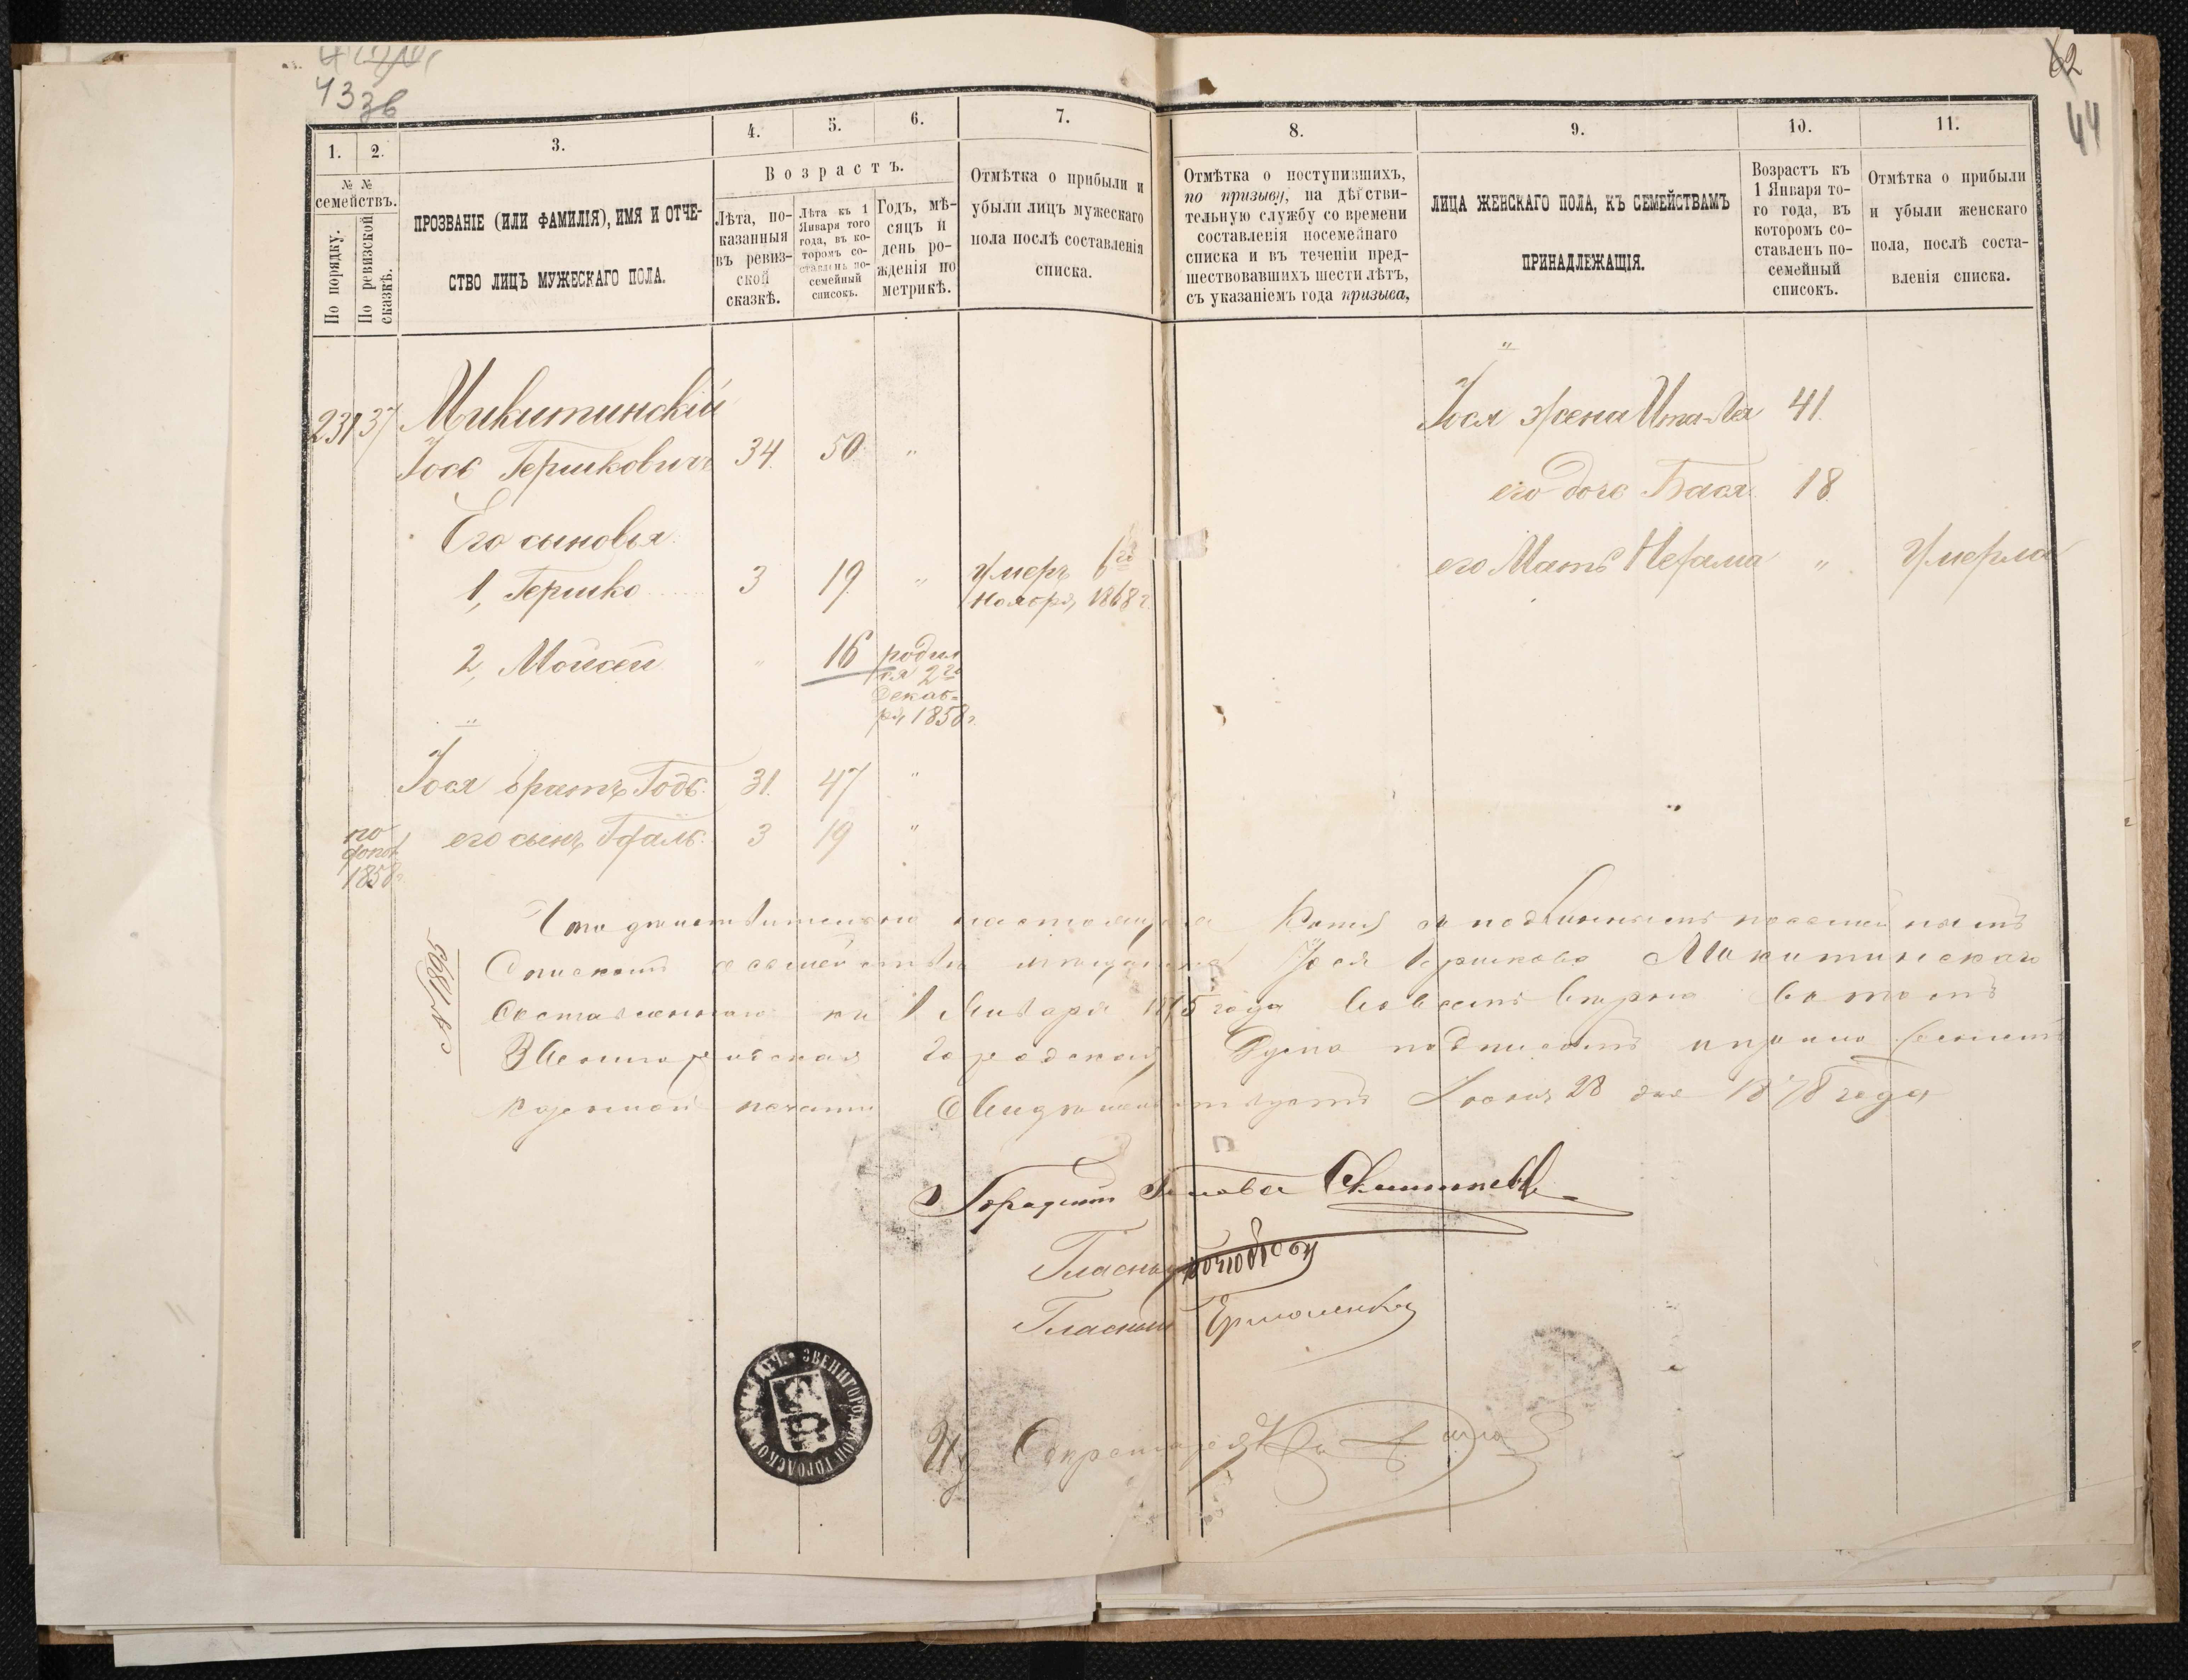 43 зв
62
44
1.
2.
3.
4.
5.
6.
7.
8.
9.
10.
11.
№ №
семействъ.
По порядку.
По ревизской сказкѣ.
ПРОЗВАНІЕ (ИЛИ ФАМИЛІЯ), ИМЯ И ОТЧЕ-
СТВО ЛИЦЪ МУЖЕСКАГО ПОЛА.
Возрастъ.
Лѣта, по-
казанныя
въ ревиз-
ской
сказкѣ.
Лѣта къ 1
Января того
года, въ ко-
торомъ со-
ставленъ по-
семейный
списокъ.
Годъ, мѣ-
сяцъ и
день ро-
жденія по
метрикѣ.
Отмѣтка о прибыли и
убыли лицъ мужескаго
пола послѣ составленія
списка.
Отмѣтка о поступившихъ,
по призыву, на дѣйстви-
тельную службу со времени
составленія посемейнаго
списка и въ теченіи пред-
шествовавшихъ шести лѣтъ,
съ указаніемъ года призыва,
ЛИЦА ЖЕНСКАГО ПОЛА, КЪ СЕМЕЙСТВАМЪ
ПРИНАДЛЕЖАЩІЯ.
Возрастъ къ
1 Января то-
го года, въ
которомъ со-
ставленъ по-
семейный
списокъ.
Отмѣтка о прибыли
и убыли женскаго
пола, послѣ соста-
вленія списка.
231 37 Микитинскій
Іось Гершковичъ 34 50 "
Его сыновья
1, Гершко 3 19 " Умеръ 6го
Ноября 1868 г.
2, Мойсей " 16 родил
ся 2го
Декаб-
ря 1858 г.
"
Іося братъ Годь 31. 47 "
его сынъ 3 19 "
по
допол
1858 г.
"
Іося жена Ита-Лея 41.
его дочь Бася 18
его Мать Нехама " Умерла
№ 1895
Что действительно настоящая Копія съ подлиннымъ посемейнымъ
Спискомъ о семействѣ мещанина Іося Гершкова Микитинскаго
Составленнаго къ 1 Января 1875 года во всемъ верна въ томъ
Звенигородская Городская Дума подписомъ и приложеніемъ
казенной печати Свидетельствуетъ Іюня 28 дня 1878 года
Городской Голова
Гласный
Гласный Ермоленко
И д Секретаря
ЗВЕНИГОРОДСКОЙ ГОРОДСКОЙ